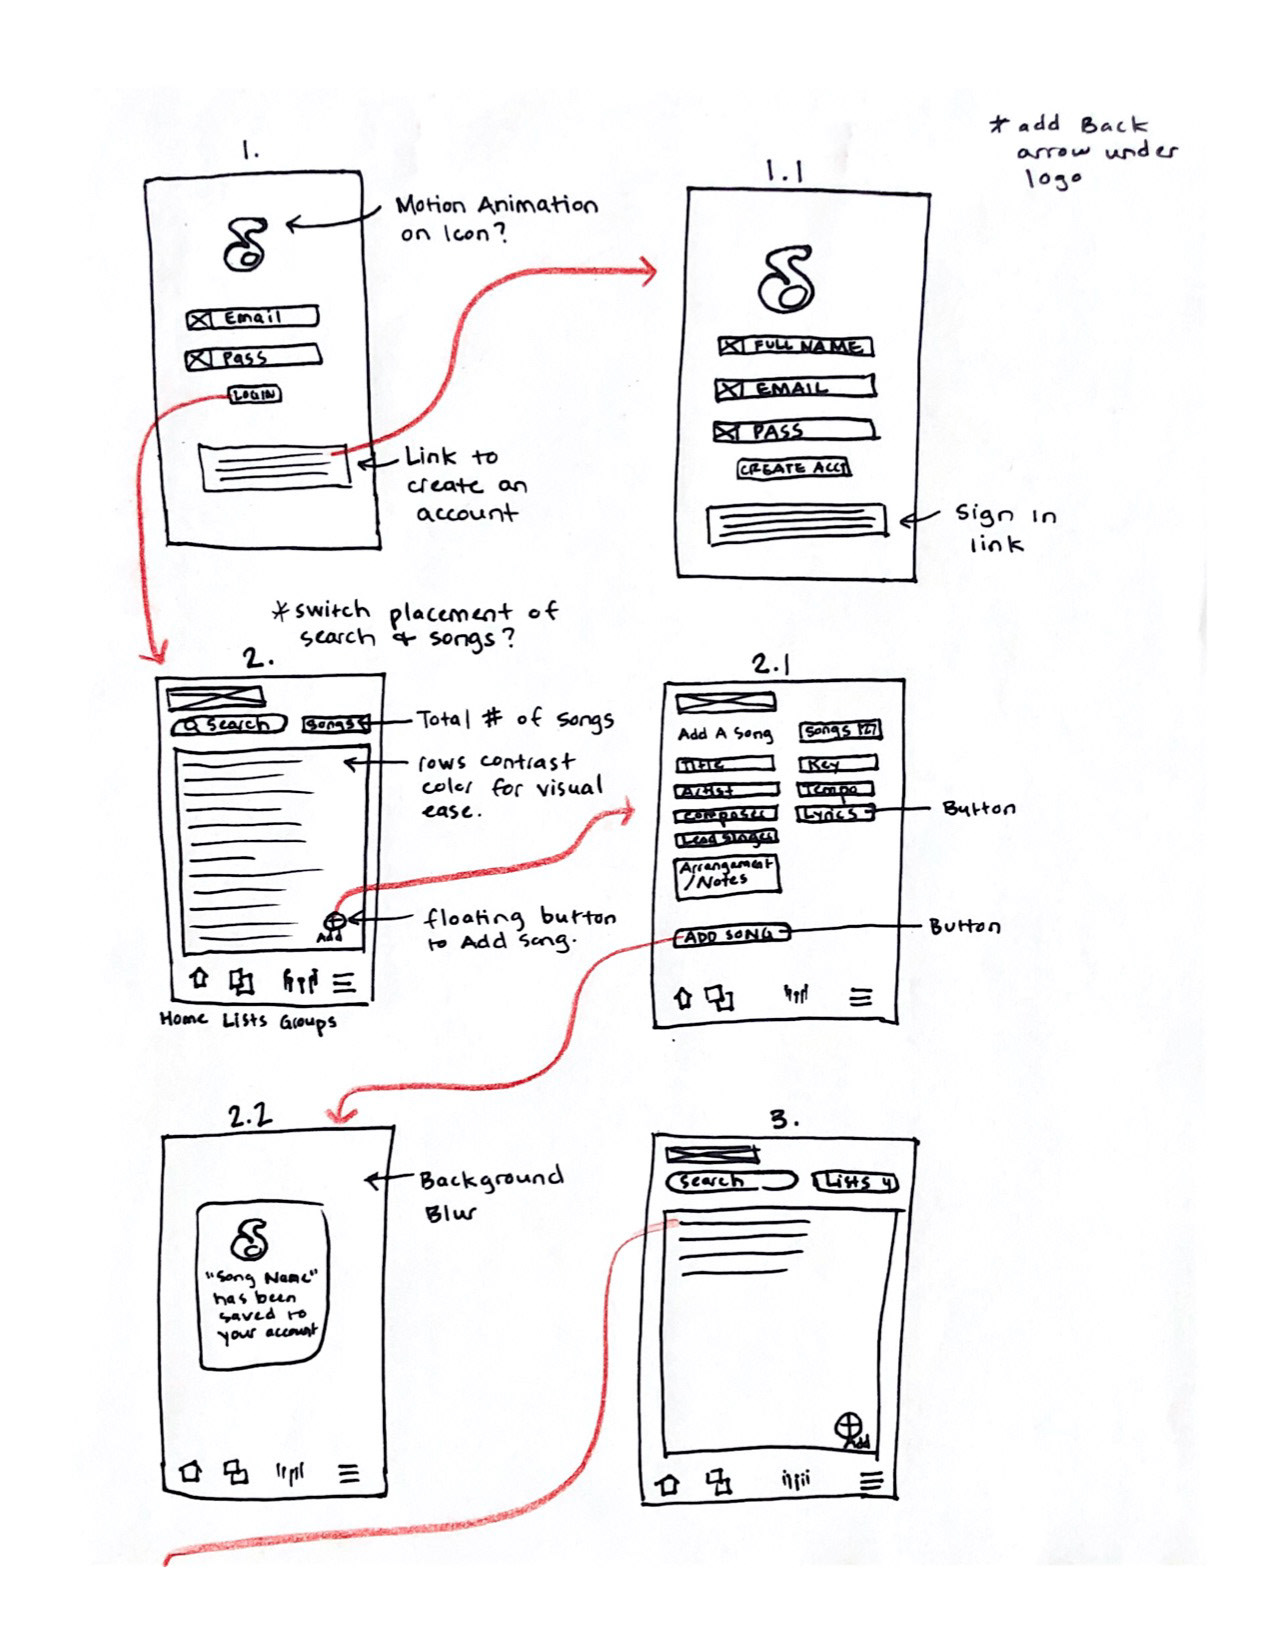 * add Back
arrow under
logo
1.
Motion Animation
on Icon?
Email
Pass
LOGIN
Link to
create an
account
1.1
FULL NAME
EMAIL
PASS
CREATE ACCT
Sign in
link
*switch placement of
search & songs?
2.
Search
Songs
Total # of songs
rows contrast
color for visual
ease.
Add
floating button
to Add Song.
Home Lists Groups
2.1
Add A Song
Songs 127
Title
Key
Artist
Tempo
Composer
Lyrics
Button
Lead Singer
Arrangement
/Notes
ADD SONG
Button
2.2
Background
Blur
"Song Name"
has been
saved to
your account
3.
Search
Lists 4
Add